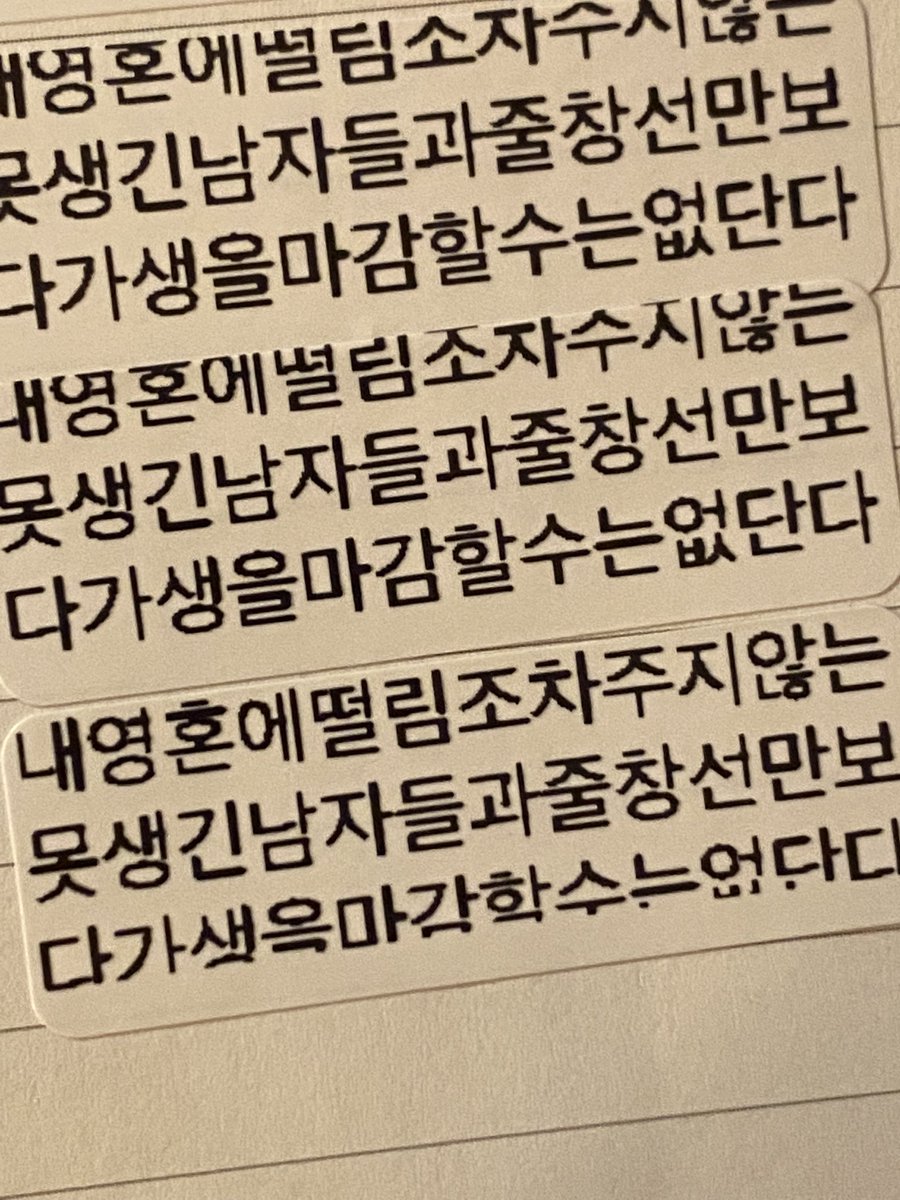 내영혼에떨림조차주지않는
못생긴남자들과줄창선만보
다가생을마감할수는없단다
내영혼에떨림조차주지않는
못생긴남자들과줄창선만보
다가생을마감할수는없단다
내영혼에떨림조차주지않는
못생긴남자들과줄창선만보
다가생을마감할수는없단다